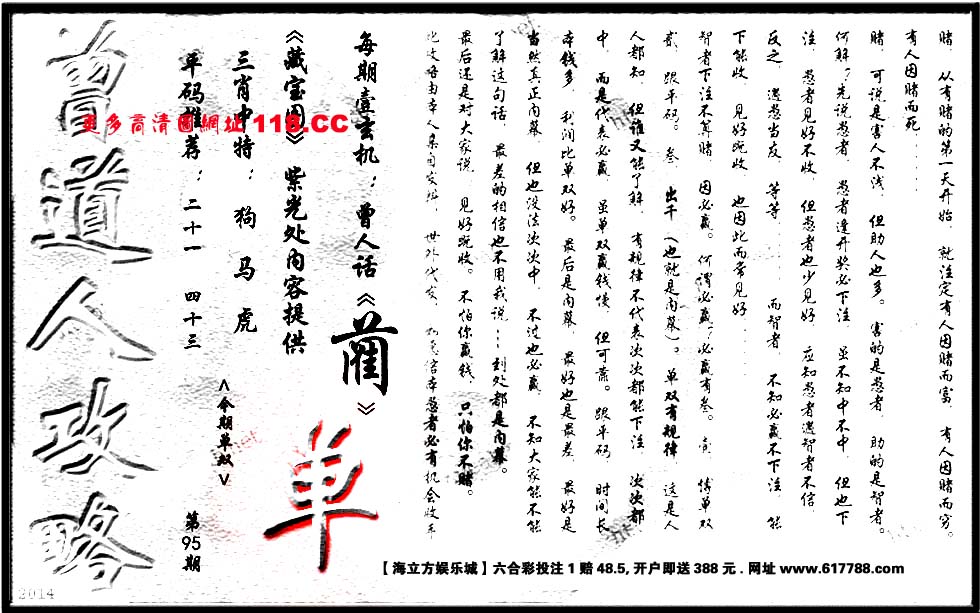 赌、从有赌的第一天开始、就注定有人因赌而富、有人因赌而穷。
有人因赌而死……
赌、可说是害人不浅、但助人也多。害的是愚者、助的是智者。
何解?先说愚者、愚者逢开奖必下注、虽不知中不中、但也下
注、愚者见好不收、但愚者也少见好、应知愚者遇智者不信、
反之、遇愚当友、等等……而智者、不知必赢不下注、能
下能收、见好既收、也因此而常见好……
智者下注不算赌、因必赢。何谓必赢?必赢有叁。壹、博单双
贰、跟平码。叁、出千(也就是内幕)。单双有规律、这是人
人都知、但谁又能了解、有规律不代表次次都能下注、次次都
中、而是代表必赢、虽单双赢钱慢、但可靠。跟平码、时间长
本钱多、利润比单双好。最后是内幕、最好也是最差、最好是
当然真正内幕、但也没法次次中、不过也必赢、不知大家能不能
了解这句话、最差的相信也不用我说…到处都是内幕。
最后还是对大家说、见好既收。不怕你赢钱、只怕你不赌。
每期壹玄机:曾人话《蔺》
《藏宝图》紫光处内容提供
三肖中特:狗 马 虎
平码推荐:二十一 四十三
更多高清圖網址 118.CC
<今期单双>
单
第95期
曾道人攻略
2014
【海立方娱乐城】六合彩投注1赔48.5,开户即送388元.网址www.617788.com